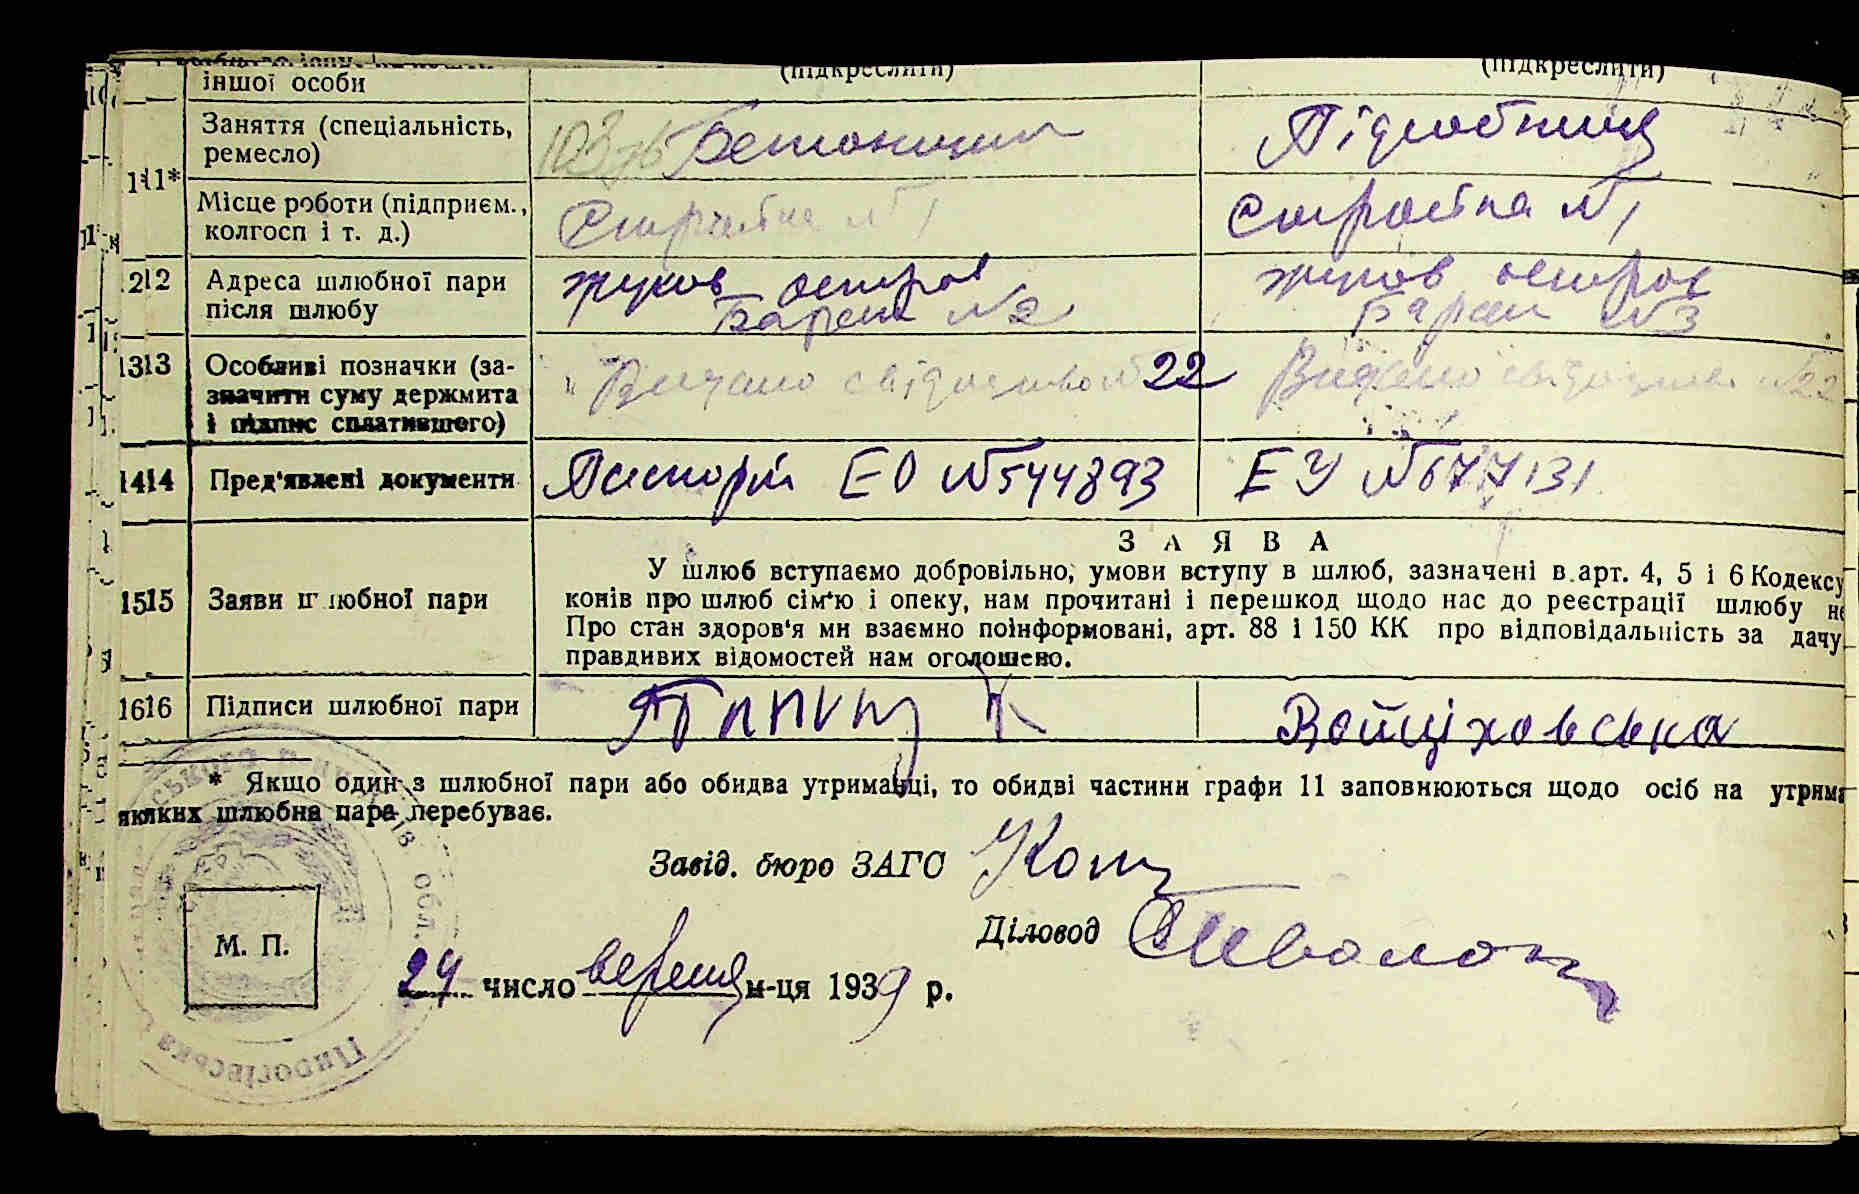 (підкреслити) (підкреслити)
іншої особи
Заняття (спеціальність, ремесло) Бетонщик Підсобниця
11*
Місце роботи (підприєм., колгосп і т. д.) Стройка №1 Стройка №1
12 Адреса шлюбної пари після шлюбу жуков остров Барак №2 жуков остров Барак №3
13 Особливі позначки (зазначити суму держмита і підпис сплатившого) Видано свідоцтво № 22 Видано свідоцтво №22
14 Пред'явлені документи Паспорти ЕО №544893 ЕУ №677131
З А Я В А
15 Заяви шлюбної пари
У шлюб вступаємо добровільно, умови вступу в шлюб, зазначені в арт. 4, 5 і 6 Кодексу
конів про шлюб сім'ю і опеку, нам прочитані і перешкод щодо нас до реєстрації шлюбу не
Про стан здоров'я ми взаємно поінформовані, арт. 88 і 150 КК про відповідальність за дачу
правдивих відомостей нам оголошено.
16 Підписи шлюбної пари Войціховська
* Якщо один з шлюбної пари або обидва утриманці, то обидві частини графи 11 заповнюються щодо осіб на утрим
яких шлюбна пара перебуває.
Завід. бюро ЗАГС
Діловод
М. П.
24 число вересня м-ця 1939 р.
Пирогівська
обл.